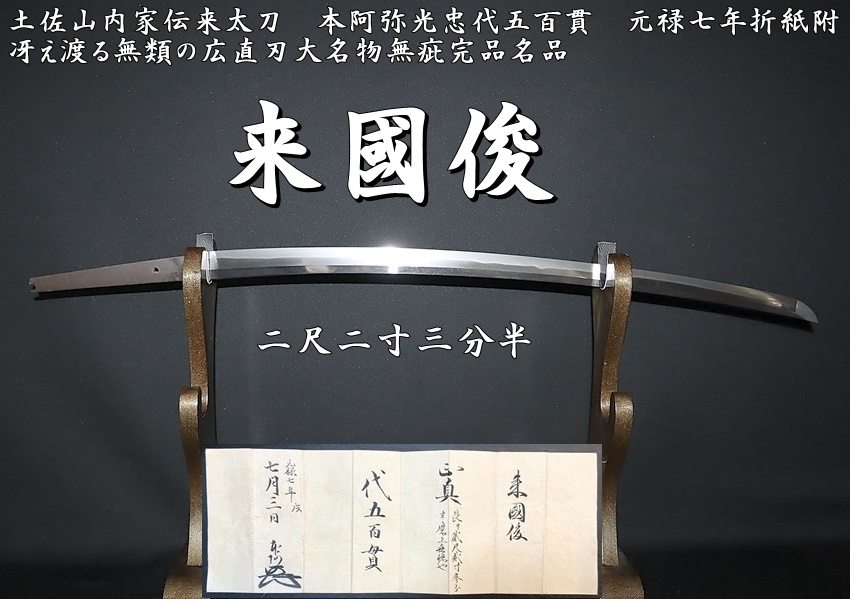 土佐山内家伝来太刀　本阿弥光忠代五百貫　元禄七年折紙附
冴え渡る無類の広直刃大名物無疵完品名品
来國俊
二尺二寸三分半
来國俊
正真
代五百貫
元禄七年戌
七月三日